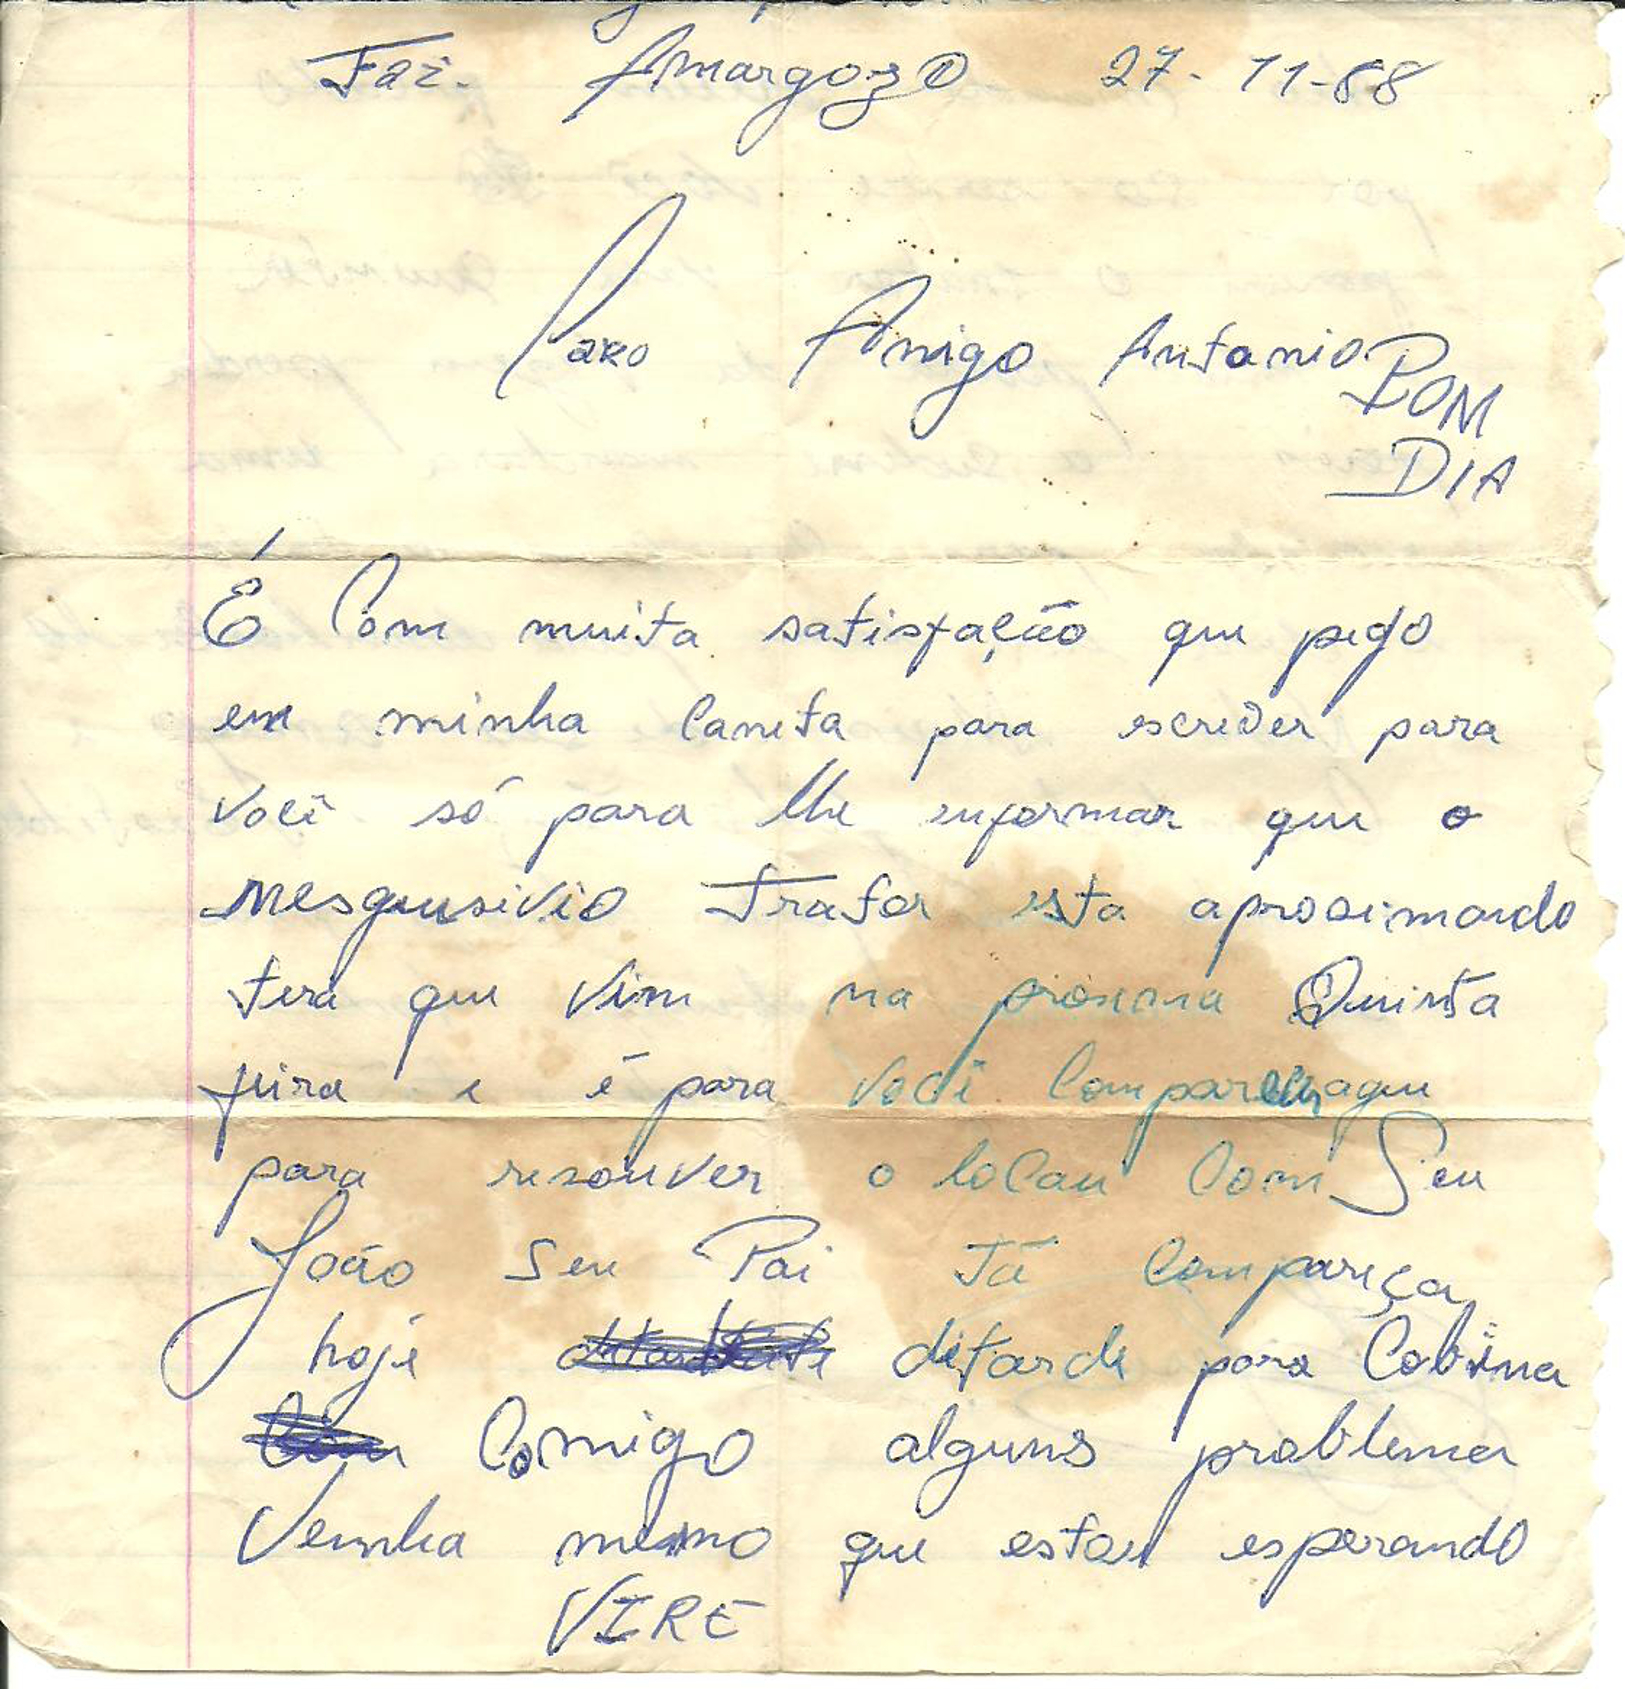 Faz. Amargozo 27-11-88
Caro Amigo Antonio BOM
DIA
É Com muita satisfação que pego
em minha Caneta para escrever para
Você só para lhe enformar que o
mesquisivio Trator esta aprosimando
tera que Vim na prosima Quinta
feira e é para Você Comparecer
para resouver o locau Com Seu
João Seu Pai Tá Compareça
hoje ditarde para Cobina
Comigo alguns problema
Venha mesmo que estou esperando
VIRE